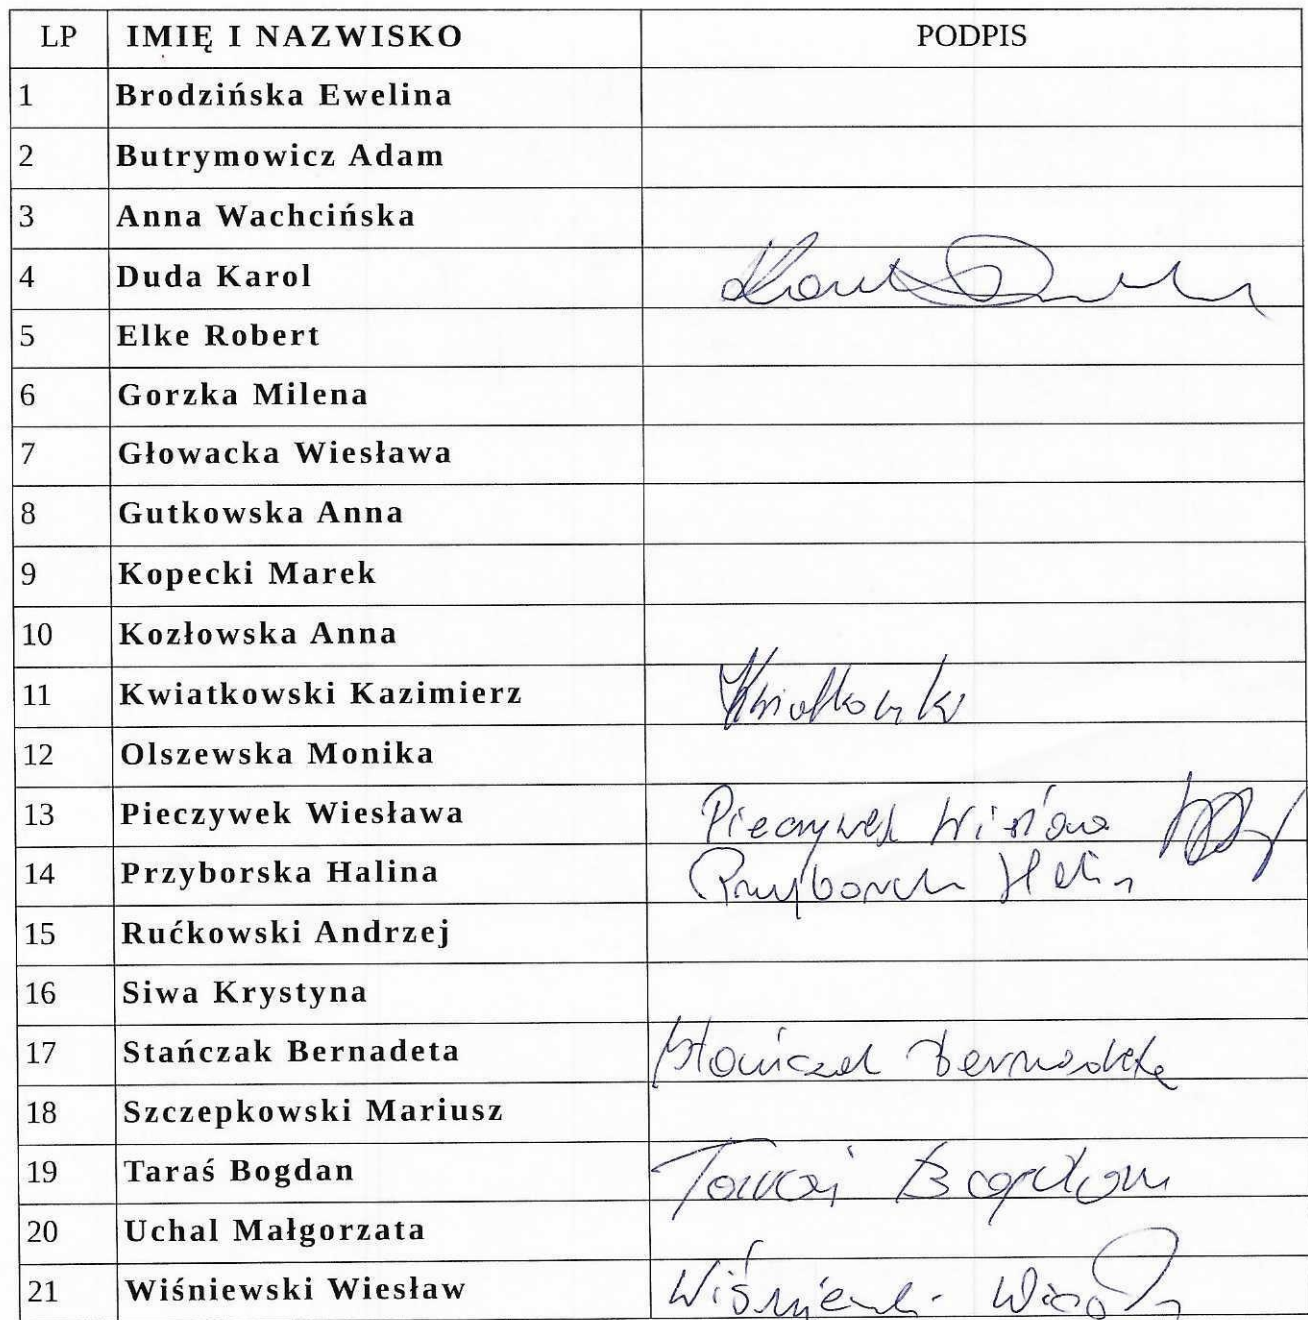 LP IMIĘ I NAZWISKO PODPIS
1 Brodzińska Ewelina
2 Butrymowicz Adam
3 Anna Wachcińska
4 Duda Karol
5 Elke Robert
6 Gorzka Milena
7 Głowacka Wiesława
8 Gutkowska Anna
9 Kopecki Marek
10 Kozłowska Anna
11 Kwiatkowski Kazimierz
12 Olszewska Monika
13 Pieczywek Wiesława
14 Przyborska Halina
15 Rućkowski Andrzej
16 Siwa Krystyna
17 Stańczak Bernadeta
18 Szczepkowski Mariusz
19 Taraś Bogdan Taraś Bogdan
20 Uchal Małgorzata
21 Wiśniewski Wiesław